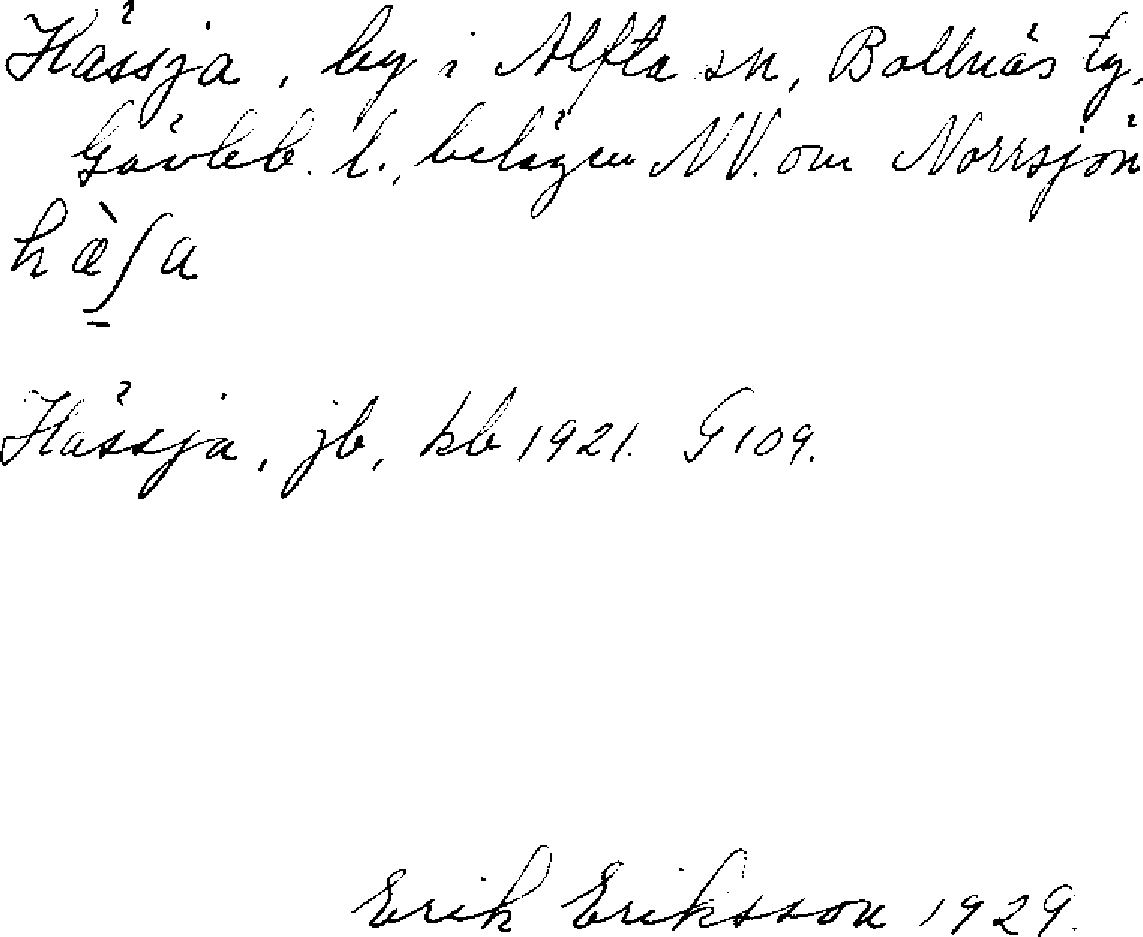 Hässja, by i Alfta sn, Bollnäs tg,
Gävleb. l., belägen NV. om Norrsjön
hæ̀ʃa
Hässja, jb, kb 1921. G 109.
Erik Eriksson 1929.